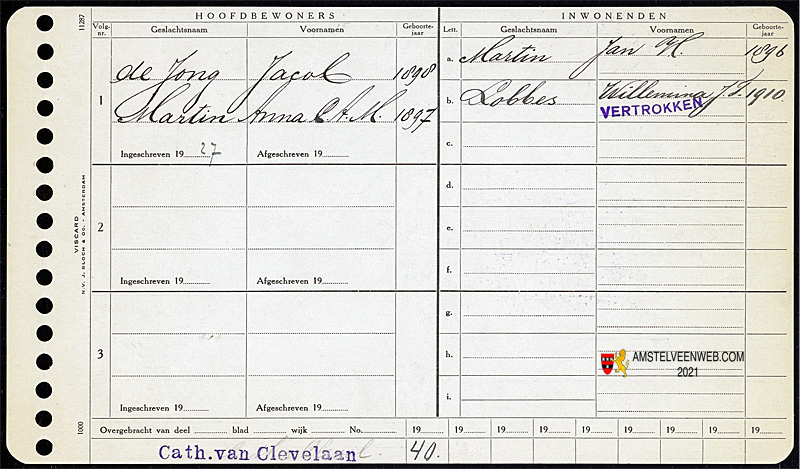 11287
HOOFDBEWONERS
INWONENDEN
Volg-nr.
Geslachtsnaam
Voornamen
Geboorte-jaar
Lett.
Geslachtsnaam
Voornamen
Geboorte-jaar
1
de Jong Jacob 1898
Martin Anna C.A.M. 1897
Ingeschreven 1927
Afgeschreven 19
a. Martin Jan H. 1896
b. Lobbes Willemina J.S. 1910.
VERTROKKEN
c.
2
Ingeschreven 19
Afgeschreven 19
d.
e.
f.
3
Ingeschreven 19
Afgeschreven 19
g.
h.
i.
AMSTELVEENWEB.COM
2021
VISCARD
N.V. J. BLOCH & CO. - AMSTERDAM
1000
Overgebracht van deel blad wijk No. 19 19 19 19 19 19 19 19 19
Cath.van Clevelaan 40.